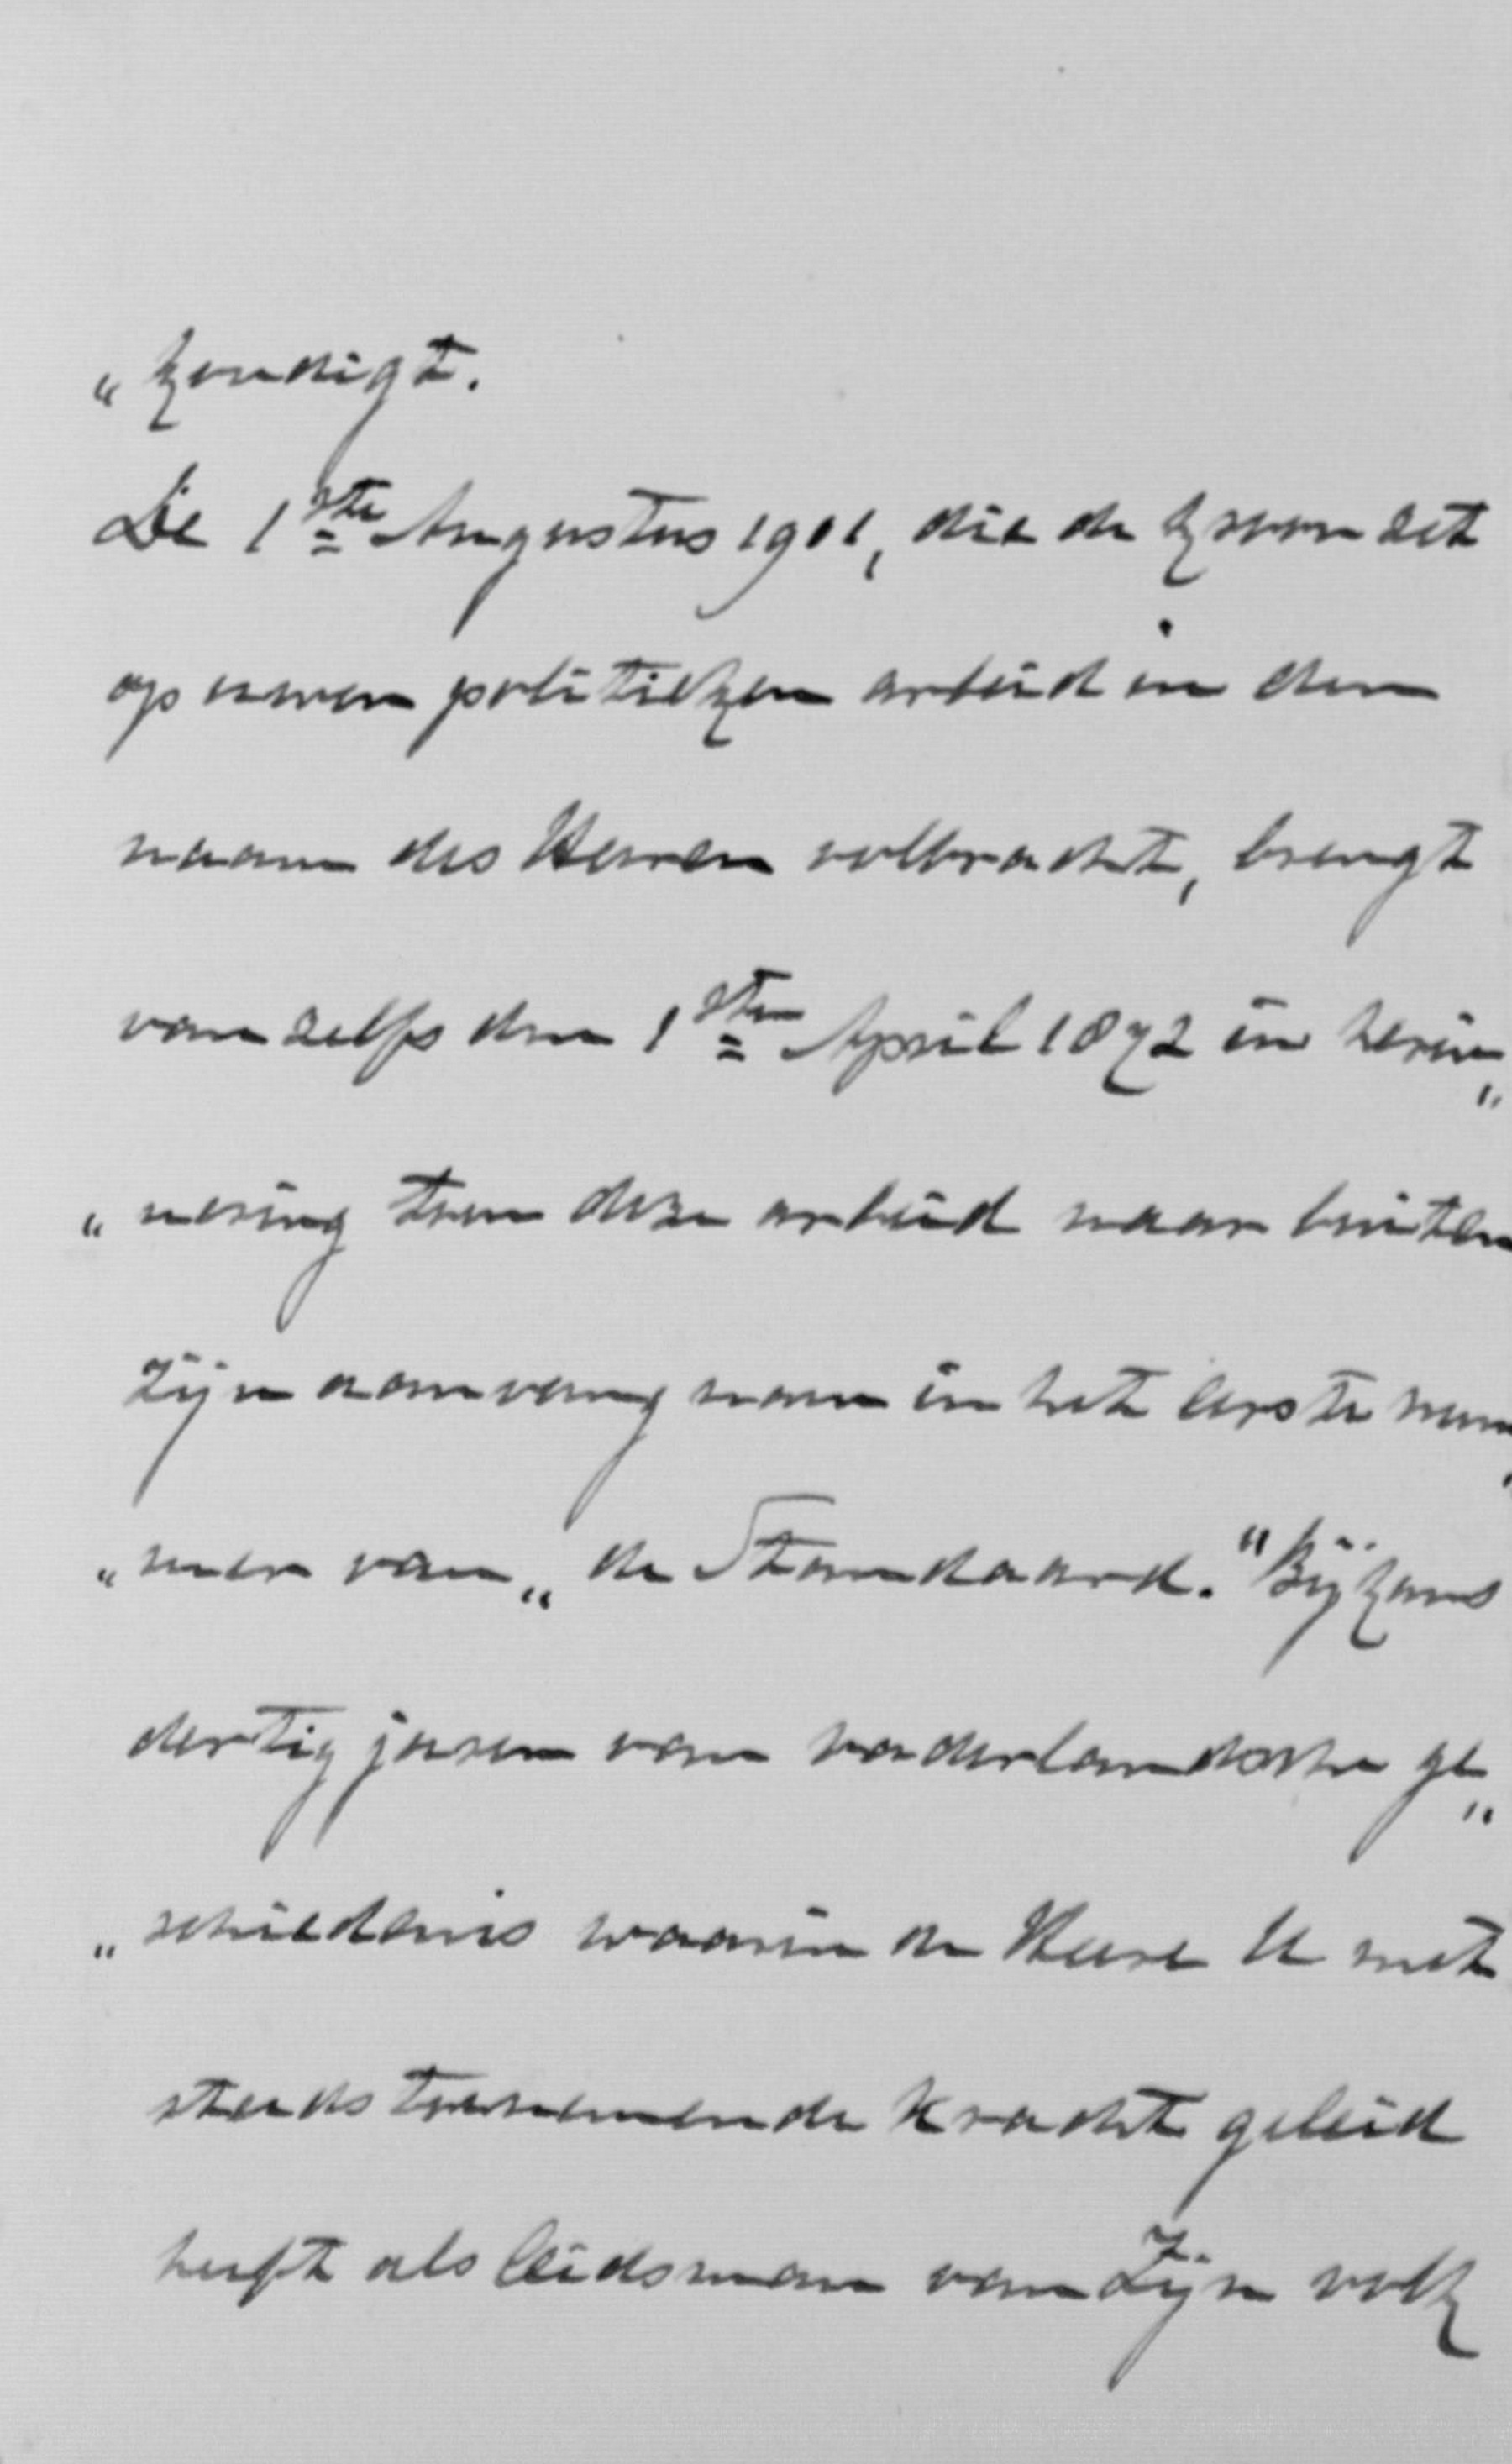 „kondigt.
Die 1ste Augustus 1901, die de kroon zet
op uwen politieken arbeid in den
naam des Heeren volbracht, brengt
van zelfs den 1sten April 1872 in herin„
„nering toen deze arbeid naar buiten
zijn aanvang nam in het eerste num„
„mer van „de Standaard." Bijkans
dertig jaren van vaderlandsche ge„
„schiedenis waarin de Heere U met
steeds toenemende kracht geleid
heeft als leidsman van Zijn volk